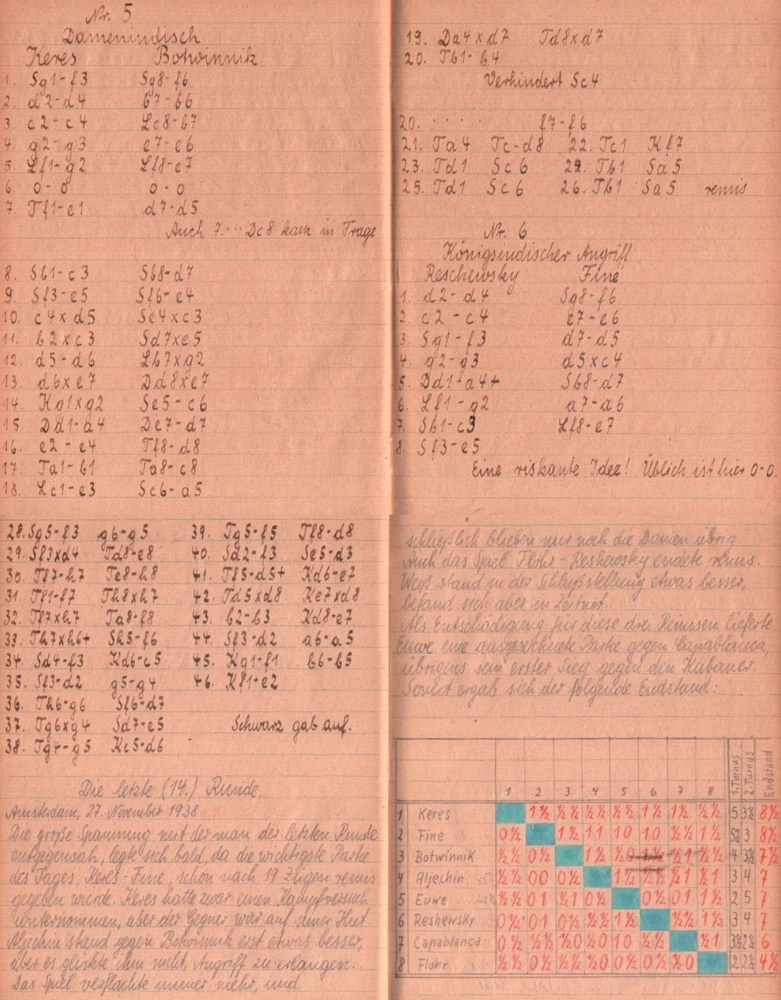 Nr. 5
Damenindisch
Keres Botwinnik
1. Sg1-f3 Sg8-f6
2. d2-d4 b7-b6
3 c2-c4 Lc8-b7
4 g2-g3 e7-e6
5. Lf1-g2 Lf8-e7
6. 0-0 0-0
7. Tf1-e1 d7-d5
Auch 7.... Dc8 kam in Frage
8. Sb1-c3 Sb8-d7
9. Sf3-e5 Sf6-e4
10. c4xd5 Se4xc3
11. b2xc3 Sd7xe5
12. d5-d6 Lb7xg2
13. d6xe7 Dd8xe7
14 Kg1xg2 Se5-c6
15 Dd1-a4 De7-d7
16. e2-e4 Tf8-d8
17. Ta1-b1 Ta8-c8
18. Lc1-e3 Sc6-a5
19. Da4xd7 Td8xd7
20. Tb1-b4
Verhindert Sc4
20. ..... f7-f6
21. Ta4 Tc-d8 22. Tc1 Kf7
23. Td1 Sc6 24. Tb1 Sa5
25. Td1 Sc6 26. Tb1 Sa5 remis
Nr. 6
Königsindischer Angriff
Reschewsky Fine
1. d2-d4 Sg8-f6
2 c2-c4 e7-e6
3 Sg1-f3 d7-d5
4. g2-g3 d5xc4
5. Dd1-a4+ Sb8-d7
6. Lf1-g2 a7-a6
7. Sb1-c3 Lf8-e7
8. Sf3-e5
Eine riskante Idee! Üblich ist hier 0-0.
28. Sg5-f3 g6-g5 39. Tg5-f5 Tf8-d8
29. Sf3xd4 Td8-e8 40. Sd2-f3 Se5-d3
30. Tf7-h7 Te8-h8 41. Tf5-d5+ Kd6-e7
31. Tf1-f7 Th8xh7 42. Td5xd8 Ke7xd8
32. Tf7xh7 Ta8-f8 43. b2-b3 Kd8-e7
33. Th7xh6+ Sh5-f6 44. Sf3-d2 a6-a5
34. Sd4-f3 Kd6-c5 45. Kg1-f1 b6-b5
35. Sf3-d2 g5-g4 46. Kf1-e2
36. Th6-g6 Sf6-d7
37. Tg6xg4 Sd7-e5 Schwarz gab auf.
38. Tg4-g5 Kc5-d6
Die letzte (14.) Runde.
Amsterdam, 27. November 1938
Die große Spannung mit der man der letzten Runde
entgegensah, legte sich bald, da die wichtigste Partie
des Tages, Keres-Fine, schon nach 19 Zügen remis
gegeben wurde. Keres hatte zwar einen Kampfversuch
unternommen, aber der Gegner war auf seiner Hut.
Aljechin stand gegen Botwinnik erst etwas besser,
aber es glückte ihm nicht, Angriff zu erlangen.
Das Spiel verflachte immer mehr, und
schließlich blieben nur noch die Damen übrig
Auch das Spiel Flohr-Reshewsky endete remis.
Weiß stand in der Schlußstellung etwas besser,
befand sich aber in Zeitnot.
Als Entschädigung für diese drei Remisen lieferte
Euwe eine ausgezeichnete Partie gegen Capablanca,
übrigens sein erster Sieg gegen den Kubaner
Somit ergab sich der folgende Endstand:
1 2 3 4 5 6 7 8 1. Turnus 2. Turnus Endstand
1 Keres 1½ ½½ ½½ ½½ 1½ 1½ ½½ 5 3½ 8½
2 Fine 0½ 1½ 11 10 10 ½½ 1½ 5½ 3 8½
3 Botwinnik ½½ 0½ 7½
4 Aljechin ½½ 00 0½ 3 4 7
5 Euwe ½½ 01 2 5 7
6 Reshewsky 0½ 01 3 4 7
7 Capablanca 0½ ½½ ½1 6
8 Flohr ½½ 0½ 4½